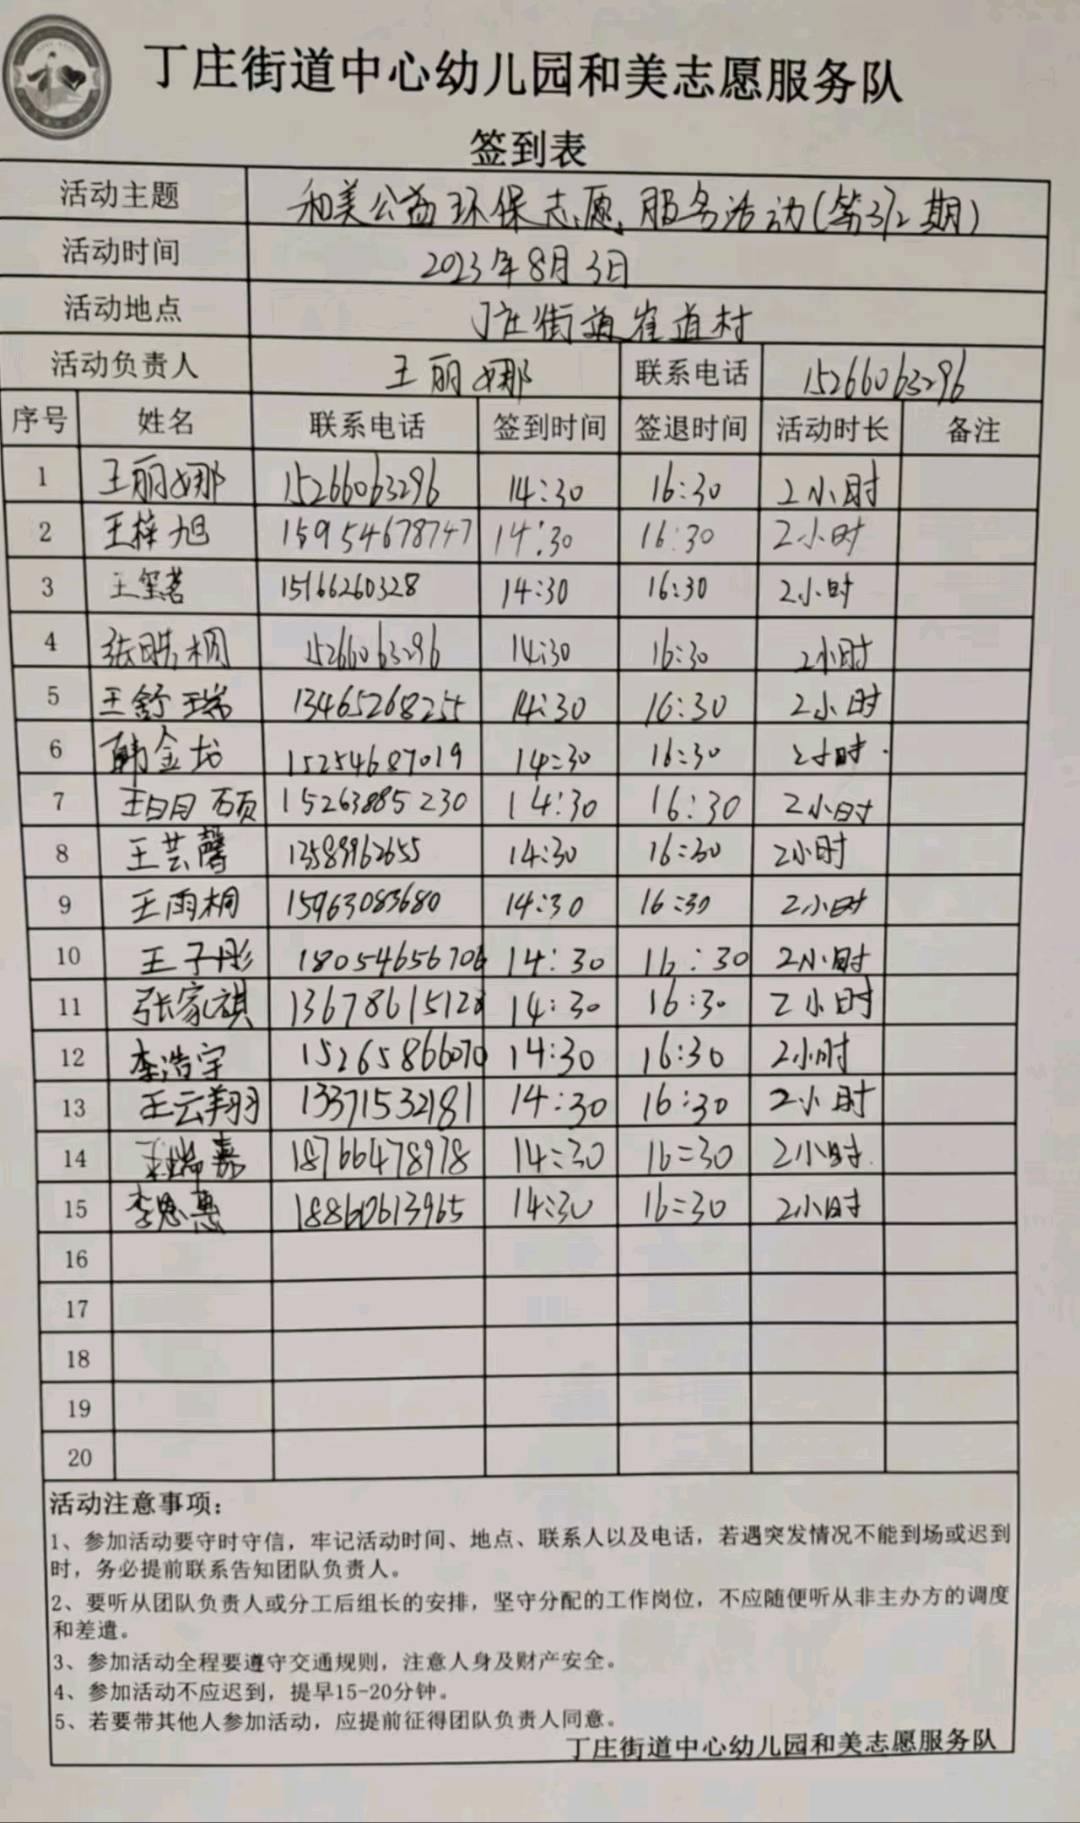 丁庄街道中心幼儿园和美志愿服务队
签到表
活动主题 和美公益环保志愿服务活动(第312期)
活动时间 2023年8月3日
活动地点 丁庄街道崔道村
活动负责人 王丽娜 联系电话 15266063296
序号 姓名 联系电话 签到时间 签退时间 活动时长 备注
1 王丽娜 15266063296 14:30 16:30 2小时
2 王梓旭 15954678747 14:30 16:30 2小时
3 王玺茗 15166260328 14:30 16:30 2小时
4 张皓桐 15266063296 14:30 16:30 2小时
5 王舒瑞 13465268255 14:30 16:30 2小时
6 韩金龙 15254687019 14:30 16:30 2小时
7 王明硕 15263885230 14:30 16:30 2小时
8 王芸馨 13589962655 14:30 16:30 2小时
9 王雨桐 15963083680 14:30 16:30 2小时
10 王子彤 18054656706 14:30 16:30 2小时
11 张家祺 13678615128 14:30 16:30 2小时
12 李浩宇 15265866070 14:30 16:30 2小时
13 王云翔 13371532181 14:30 16:30 2小时
14 瑞嘉 18766478978 14:30 16:30 2小时
15 李思惠 18860613965 14:30 16:30 2小时
16
17
18
19
20
活动注意事项：
1、参加活动要守时守信，牢记活动时间、地点、联系人以及电话，若遇突发情况不能到场或迟到
时，务必提前联系告知团队负责人。
2、要听从团队负责人或分工后组长的安排，坚守分配的工作岗位，不应随便听从非主办方的调度
和差遣。
3、参加活动全程要遵守交通规则，注意人身及财产安全。
4、参加活动不应迟到，提早15-20分钟。
5、若要带其他人参加活动，应提前征得团队负责人同意。
丁庄街道中心幼儿园和美志愿服务队